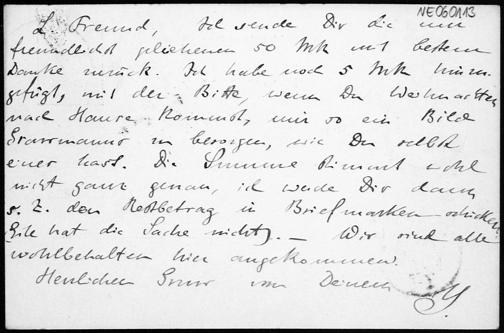 NE060113
L. Freund, Ich sende Dir die mir
freundlichst geliehenen 50 Mk mit bestem
Danke zurück. Ich habe noch 5 Mk hinzu-
gefügt, mit der Bitte, wenn Du Weihnachten
nach Hause kommst, mir so ein Bild
zu besorgen, wie Du selbst
einer hast. Die Summe stimmt wohl
nicht ganz genau, ich werde Dir dann
s. Z. den Restbetrag in Briefmarken schicken
(Eile hat die Sache nicht). – Wir sind alle
wohlbehalten hier angekommen.
Herzlichen Gruss von Deinem